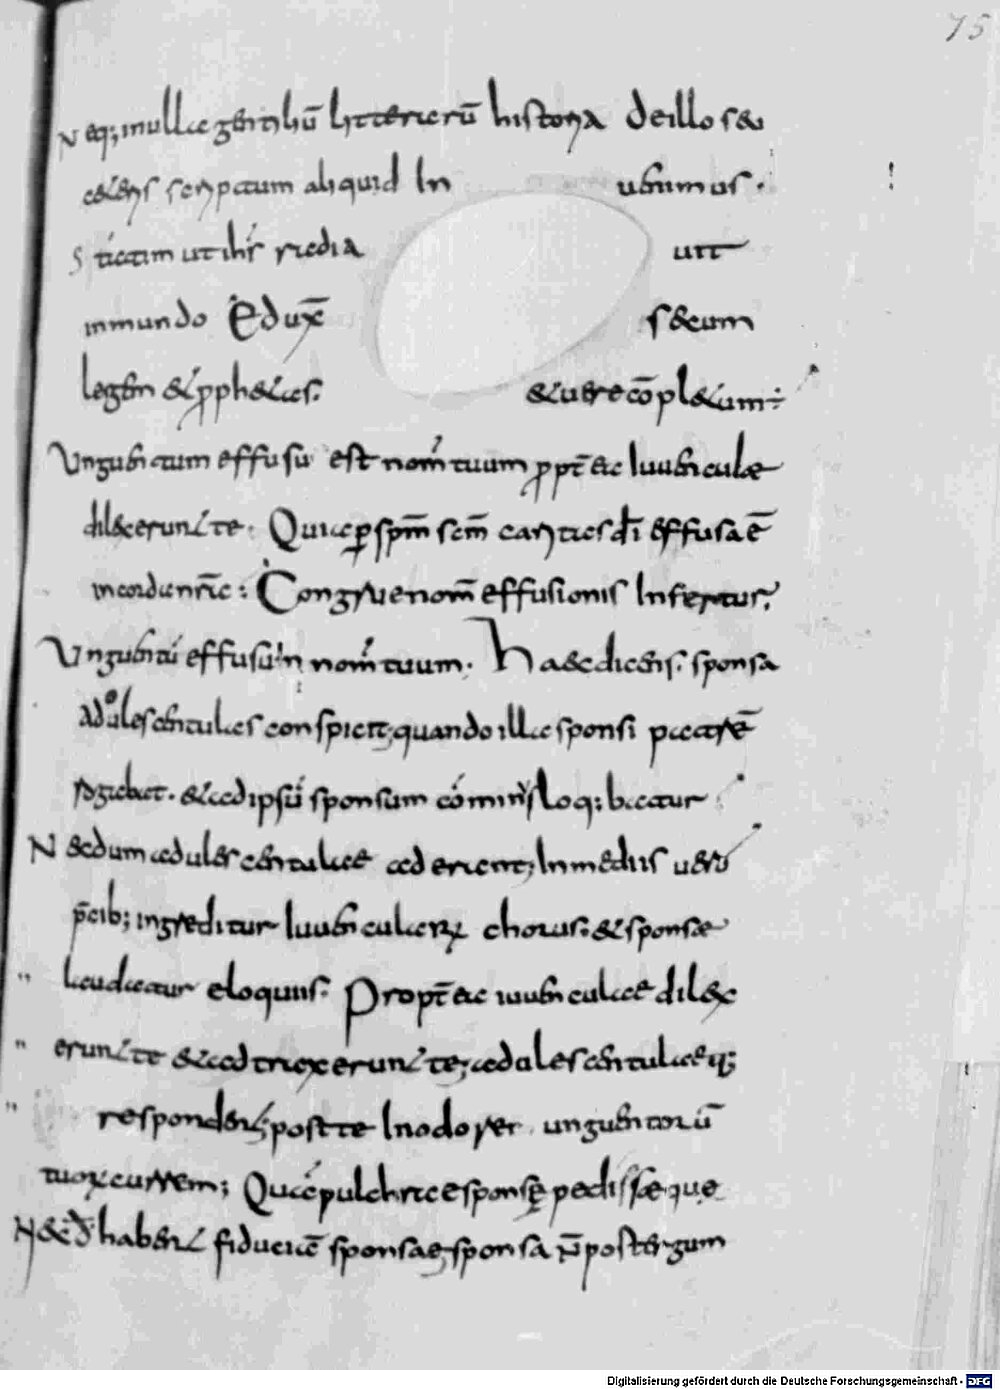 75
Neq; in ulla gentiliū litterarū historia de illo sae
culens scriptum aliquid In uenimus.
Statim ut ihs radia uit
in mundo Eduxt secum
legem & pphetas. & uere cōpletum
Unguentum effusū est nom tuum pptea Iuuenculae
dilexerunt te. Quia per spm scm caritas di effusa ē
in corda nra: Congrue nom effusionis Infertur,
Unguentū effusū In nom tuum. Haec dicens. sponsa
adulescentulas conspicit; quando illa sponsi patrē
rogabat. & ad ipsū sponsum comin loq;batur
Necdum adulescentulae aderant; In mediis uero
pcib; ingreditur Iuuencularum chorus. & sponsae
laudatur eloquiis. Proptea iuuenculae dilex
erunt te & adtraxerunt te; adulescentulaeq;
respondent, post te In odorem unguentorū
tuorum curremus; Quā pulchrae sponsę pedissaequę
Necdū habent fiduciā sponsae, sponsa n post tergum
Digitalisierung gefördert durch die Deutsche Forschungsgemeinschaft - DFG